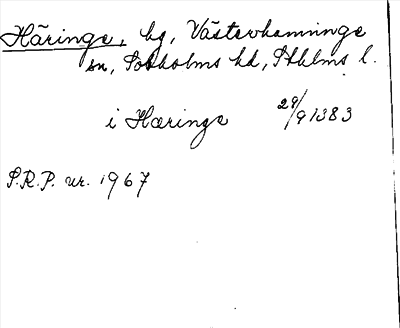 Häringe, hg, Västerhanninge
sn, Sotholms hd, Sthlms l.
i Hæringe 29/9 1383
S.R.P. nr. 1967